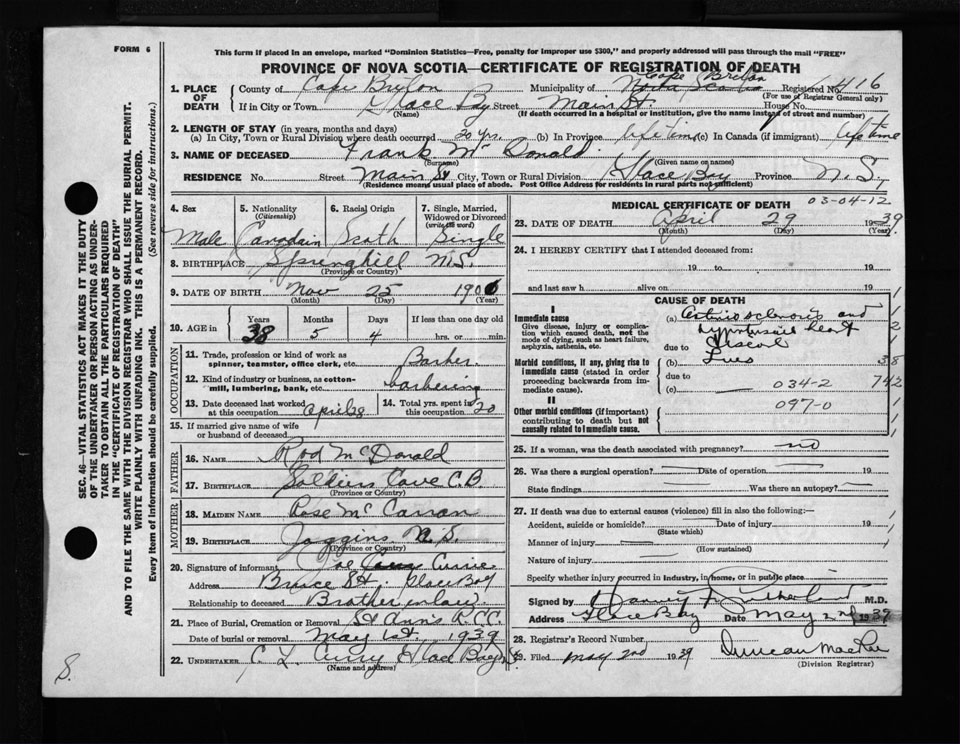 FORM 6
This form if placed in an envelope, marked "Dominion Statistics—Free, penalty for improper use $300," and properly addressed will pass through the mail "FREE"
PROVINCE OF NOVA SCOTIA—CERTIFICATE OF REGISTRATION OF DEATH
SEC. 46—VITAL STATISTICS ACT MAKES IT THE DUTY
OF THE UNDERTAKER OR PERSON ACTING AS UNDER-
TAKER TO OBTAIN ALL THE PARTICULARS REQUIRED
IN THE "CERTIFICATE OF REGISTRATION OF DEATH"
AND TO FILE THE SAME WITH THE DIVISION REGISTRAR WHO SHALL ISSUE THE BURIAL PERMIT.
WRITE PLAINLY WITH UNFADING INK. THIS IS A PERMANENT RECORD.
Every item of Information should be carefully supplied. (See reverse side for instructions.)
1. PLACE OF DEATH
County of Cape Breton Municipality of Cape Breton Nova Scotia Registered No. 416
(For use of Registrar General only)
If in City or Town Glace Bay Street Main St. House No.
(Name) (If death occurred in a hospital or institution, give the name instead of street and number)
2. LENGTH OF STAY (in years, months and days)
(a) In City, Town or Rural Division where death occurred 20 yrs. (b) In Province life time (c) In Canada (if immigrant) life time
3. NAME OF DECEASED Frank Mc Donald
(Surname) (Given name or names)
RESIDENCE No. Street Main St City, Town or Rural Division Glace Bay Province N.S.,
(Residence means usual place of abode. Post Office Address for residents in rural parts not sufficient)
4. Sex 5. Nationality (Citizenship) 6. Racial Origin 7. Single, Married, Widowed or Divorced (write the word)
Male Canadain Scoth Single
8. BIRTHPLACE Springhill N.S.
(Province or Country)
9. DATE OF BIRTH Nov 25 1900
(Month) (Day) (Year)
10. AGE in Years Months Days If less than one day old
38 5 4 hrs. or min.
OCCUPATION
11. Trade, profession or kind of work as spinner, teamster, office clerk, etc. Barber
12. Kind of industry or business, as cotton-mill, lumbering, bank, etc. barbering
13. Date deceased last worked at this occupation April 28 14. Total yrs. spent in this occupation 20
15. If married give name of wife or husband of deceased
FATHER
16. NAME Rod McDonald
17. BIRTHPLACE Soldiers Cove C.B.
(Province or Country)
MOTHER
18. MAIDEN NAME Rose Mc Carran
19. BIRTHPLACE Joggins N.S.
(Province or Country)
20. Signature of informant Joe Currie
Address Bruce St. Glace Bay
Relationship to deceased Brother in law.
21. Place of Burial, Cremation or Removal St Ann's R.C.C.
Date of burial or removal May 1st. 1939
22. UNDERTAKER C. L. Curry Glace Bay
(Name and address)
MEDICAL CERTIFICATE OF DEATH
03-04-12
23. DATE OF DEATH April 29 1939
(Month) (Day) (Year)
24. I HEREBY CERTIFY that I attended deceased from:
19 to 19
and last saw h alive on 19
CAUSE OF DEATH
I
Immediate cause
Give disease, injury or complication which caused death, not the mode of dying, such as heart failure, asphyxia, asthenia, etc.
(a) Arteriosclerosis and
hypertensive heart
due to disease
Morbid conditions, if any, giving rise to immediate cause (stated in order proceeding backwards from immediate cause).
(b) Lues
due to
(c) 034-2
742
II
Other morbid conditions (if important) contributing to death but not causally related to immediate cause.
097-0
25. If a woman, was the death associated with pregnancy? no
26. Was there a surgical operation? Date of operation 19
State findings Was there an autopsy?
27. If death was due to external causes (violence) fill in also the following:—
Accident, suicide or homicide? Date of injury 19
(State which)
Manner of injury
(How sustained)
Nature of injury
Specify whether injury occurred in Industry, in home, or in public place
Signed by Harvey Sutherland M.D.
Address Glace Bay Date May 2nd 1939
28. Registrar's Record Number
29. Filed May 2nd 1939 Duncan MacRae
(Division Registrar)
S.